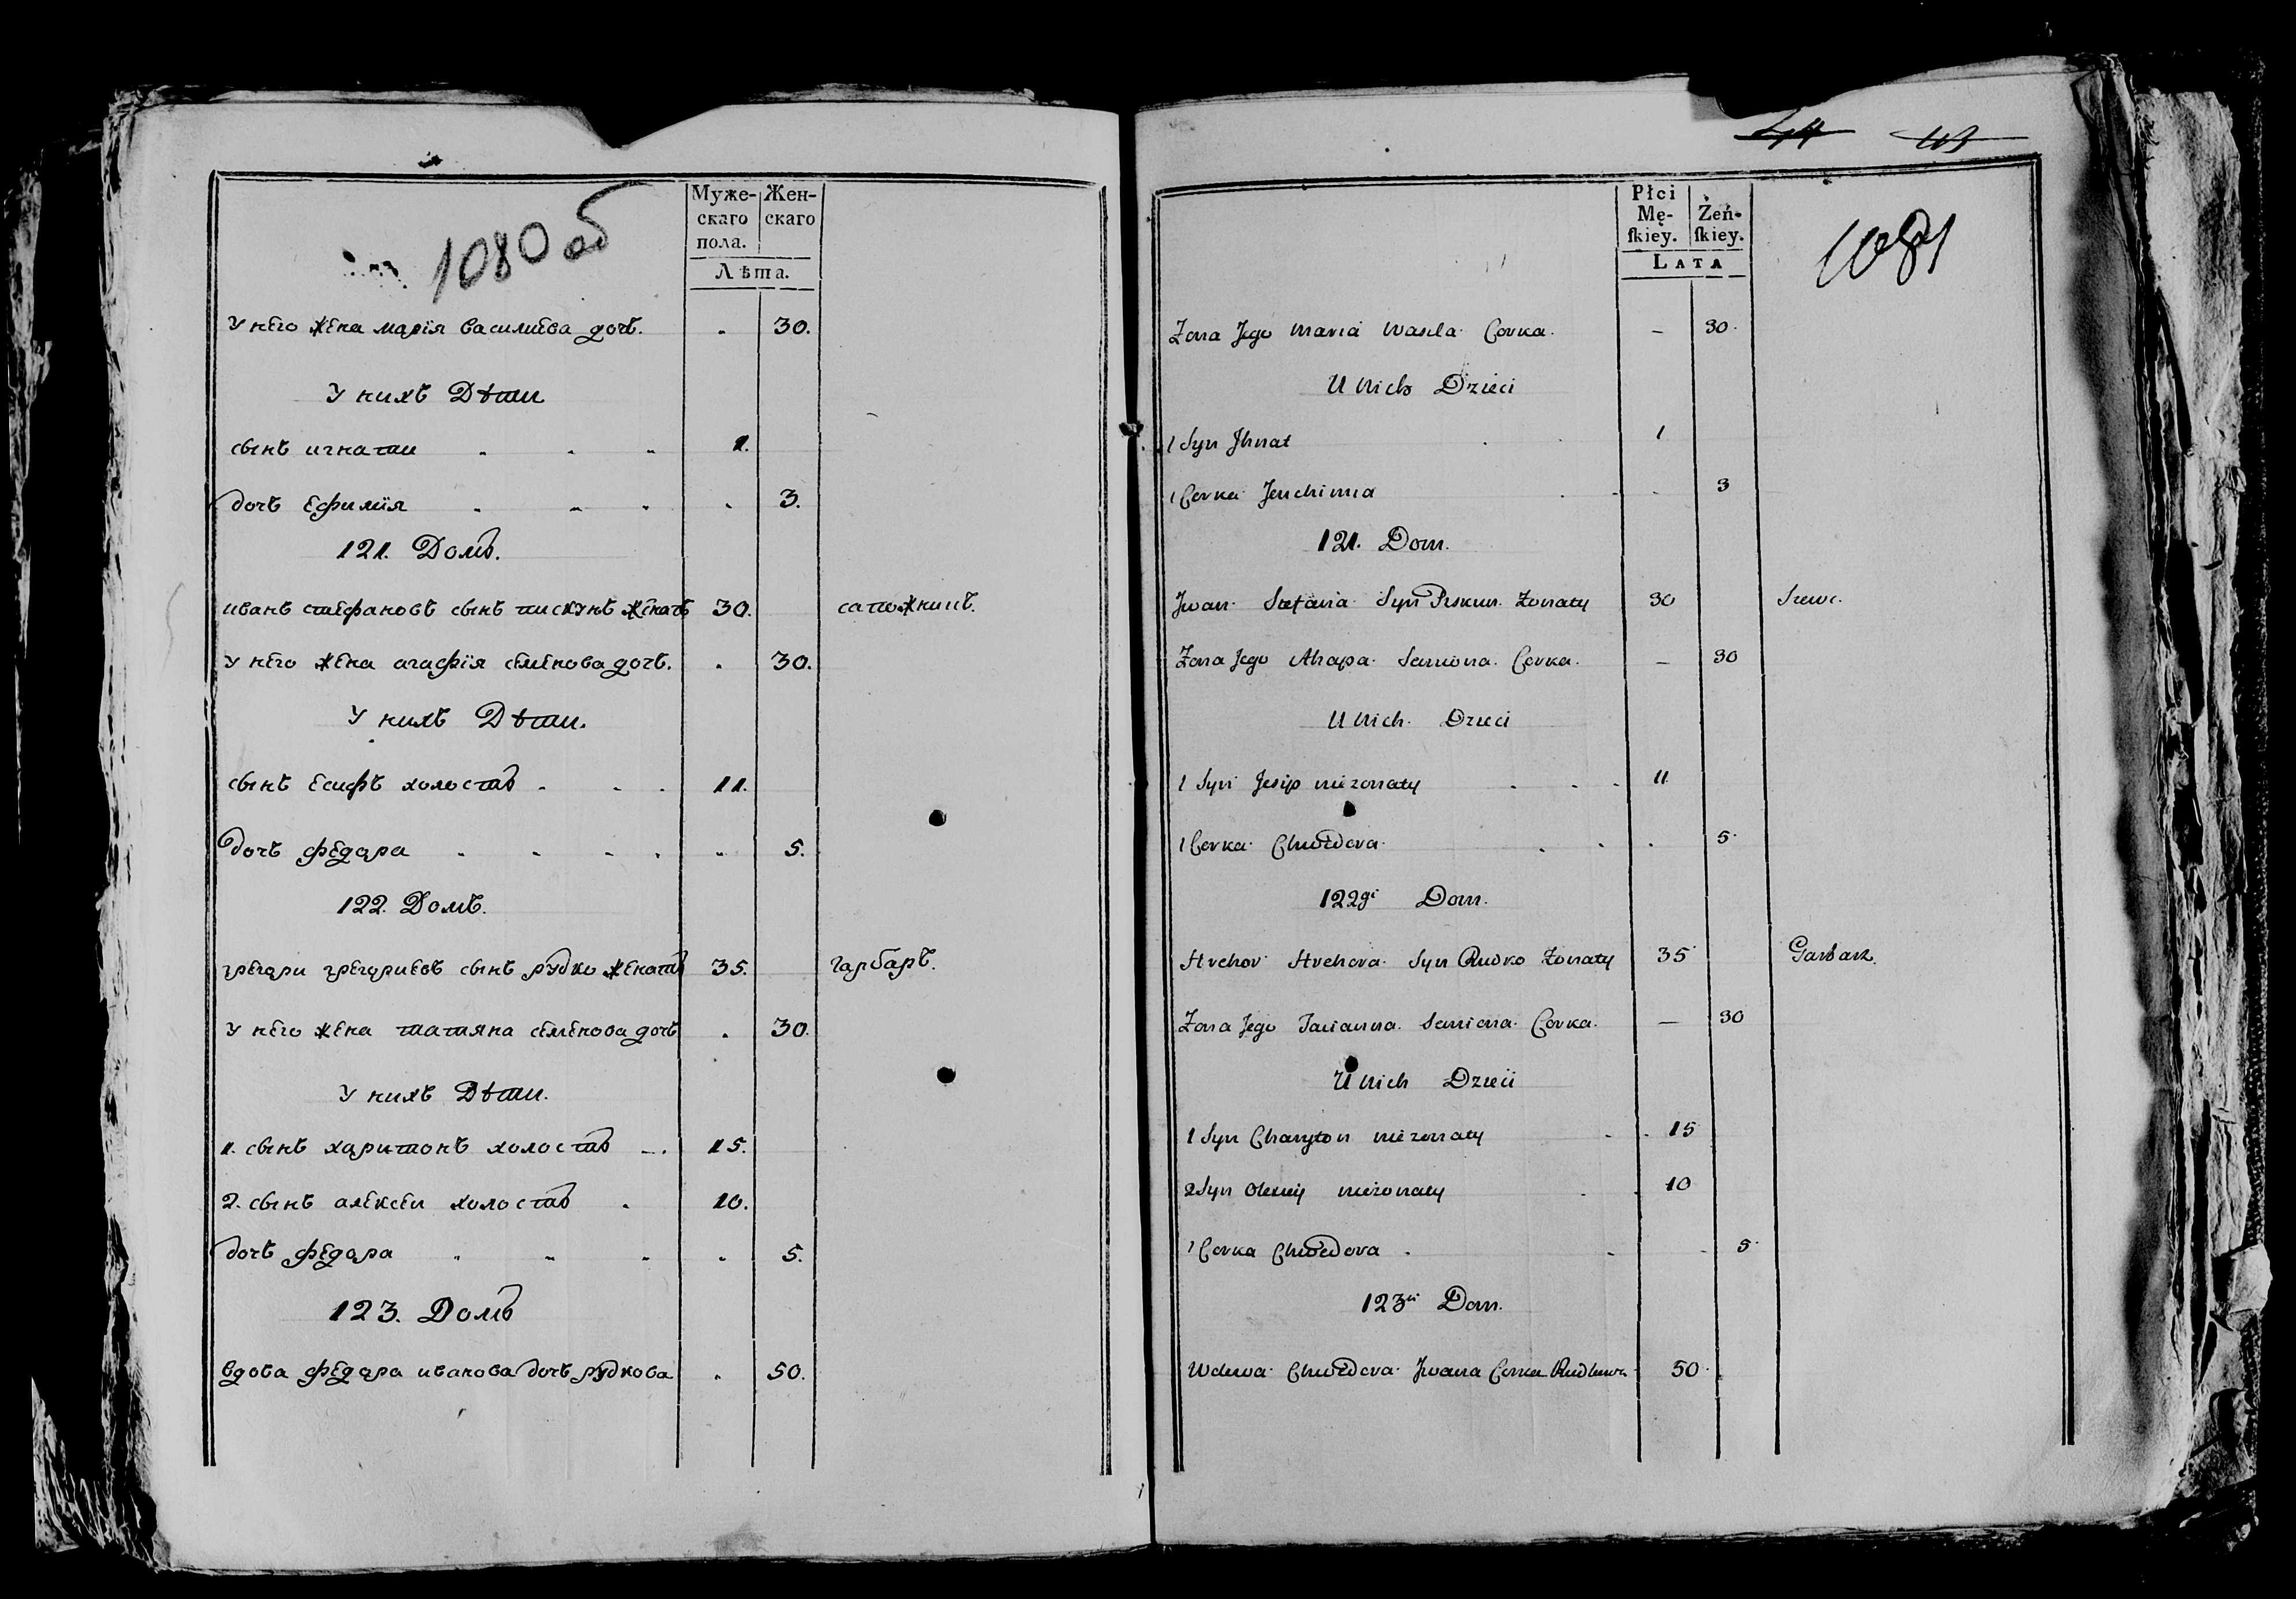 1080 об
Муже-
скаго
пола.
Жен-
скаго
Лѣта.
У него жена марїя василиева дочь. . 30.
У нихъ Дѣти
сынъ игнати 1.
дочь ефимїя . 3.
121. Домъ.
иванъ стефановъ сынъ пискунъ женатъ 30. сапожникъ.
У него жена агафїя семенова дочь. . 30.
У нихъ Дѣти.
сынъ есифъ холостъ 11.
дочь федора 5.
122. Домъ.
грегори грегориевъ сынъ рудко женатъ 35. гарбаръ.
У него жена татяна семенова дочь . 30.
У нихъ Дѣти.
1. сынъ харитонъ холостъ 15.
2. сынъ алексеи холостъ 10.
дочь федора 5.
123. Домъ
вдова федора иванова дочь рудкова . 50.
Płci
Mę-
ſkiey.
Żeń-
ſkiey.
LATA
1081
Zona Jego Maria Wasila Corka. – 30.
U Nich Dzieci
1 Syn Jhnat 1
1 Corka Jeuchimia 3
121. Dom.
Jwan Stefana Syn Piskun Zonaty 30 Szewc.
Zona Jego Ahapa Semiona Corka. – 30
U Nich Dzieci
1 Syn Jesip niezonaty 11
1 Corka Chwedora 5
122gi Dom.
Hrehor Hrehora Syn Rudko Zonaty 35 Garbarz.
Zona Jego Tacianna Semiona Corka. – 30
U Nich Dzieci
1 Syn Charyton niezonaty 15
2 Syn Olexiy niezonaty 10
1 Corka Chwedora 5
123ci Dom.
Wdowa Chwedora Jwana Corka 50